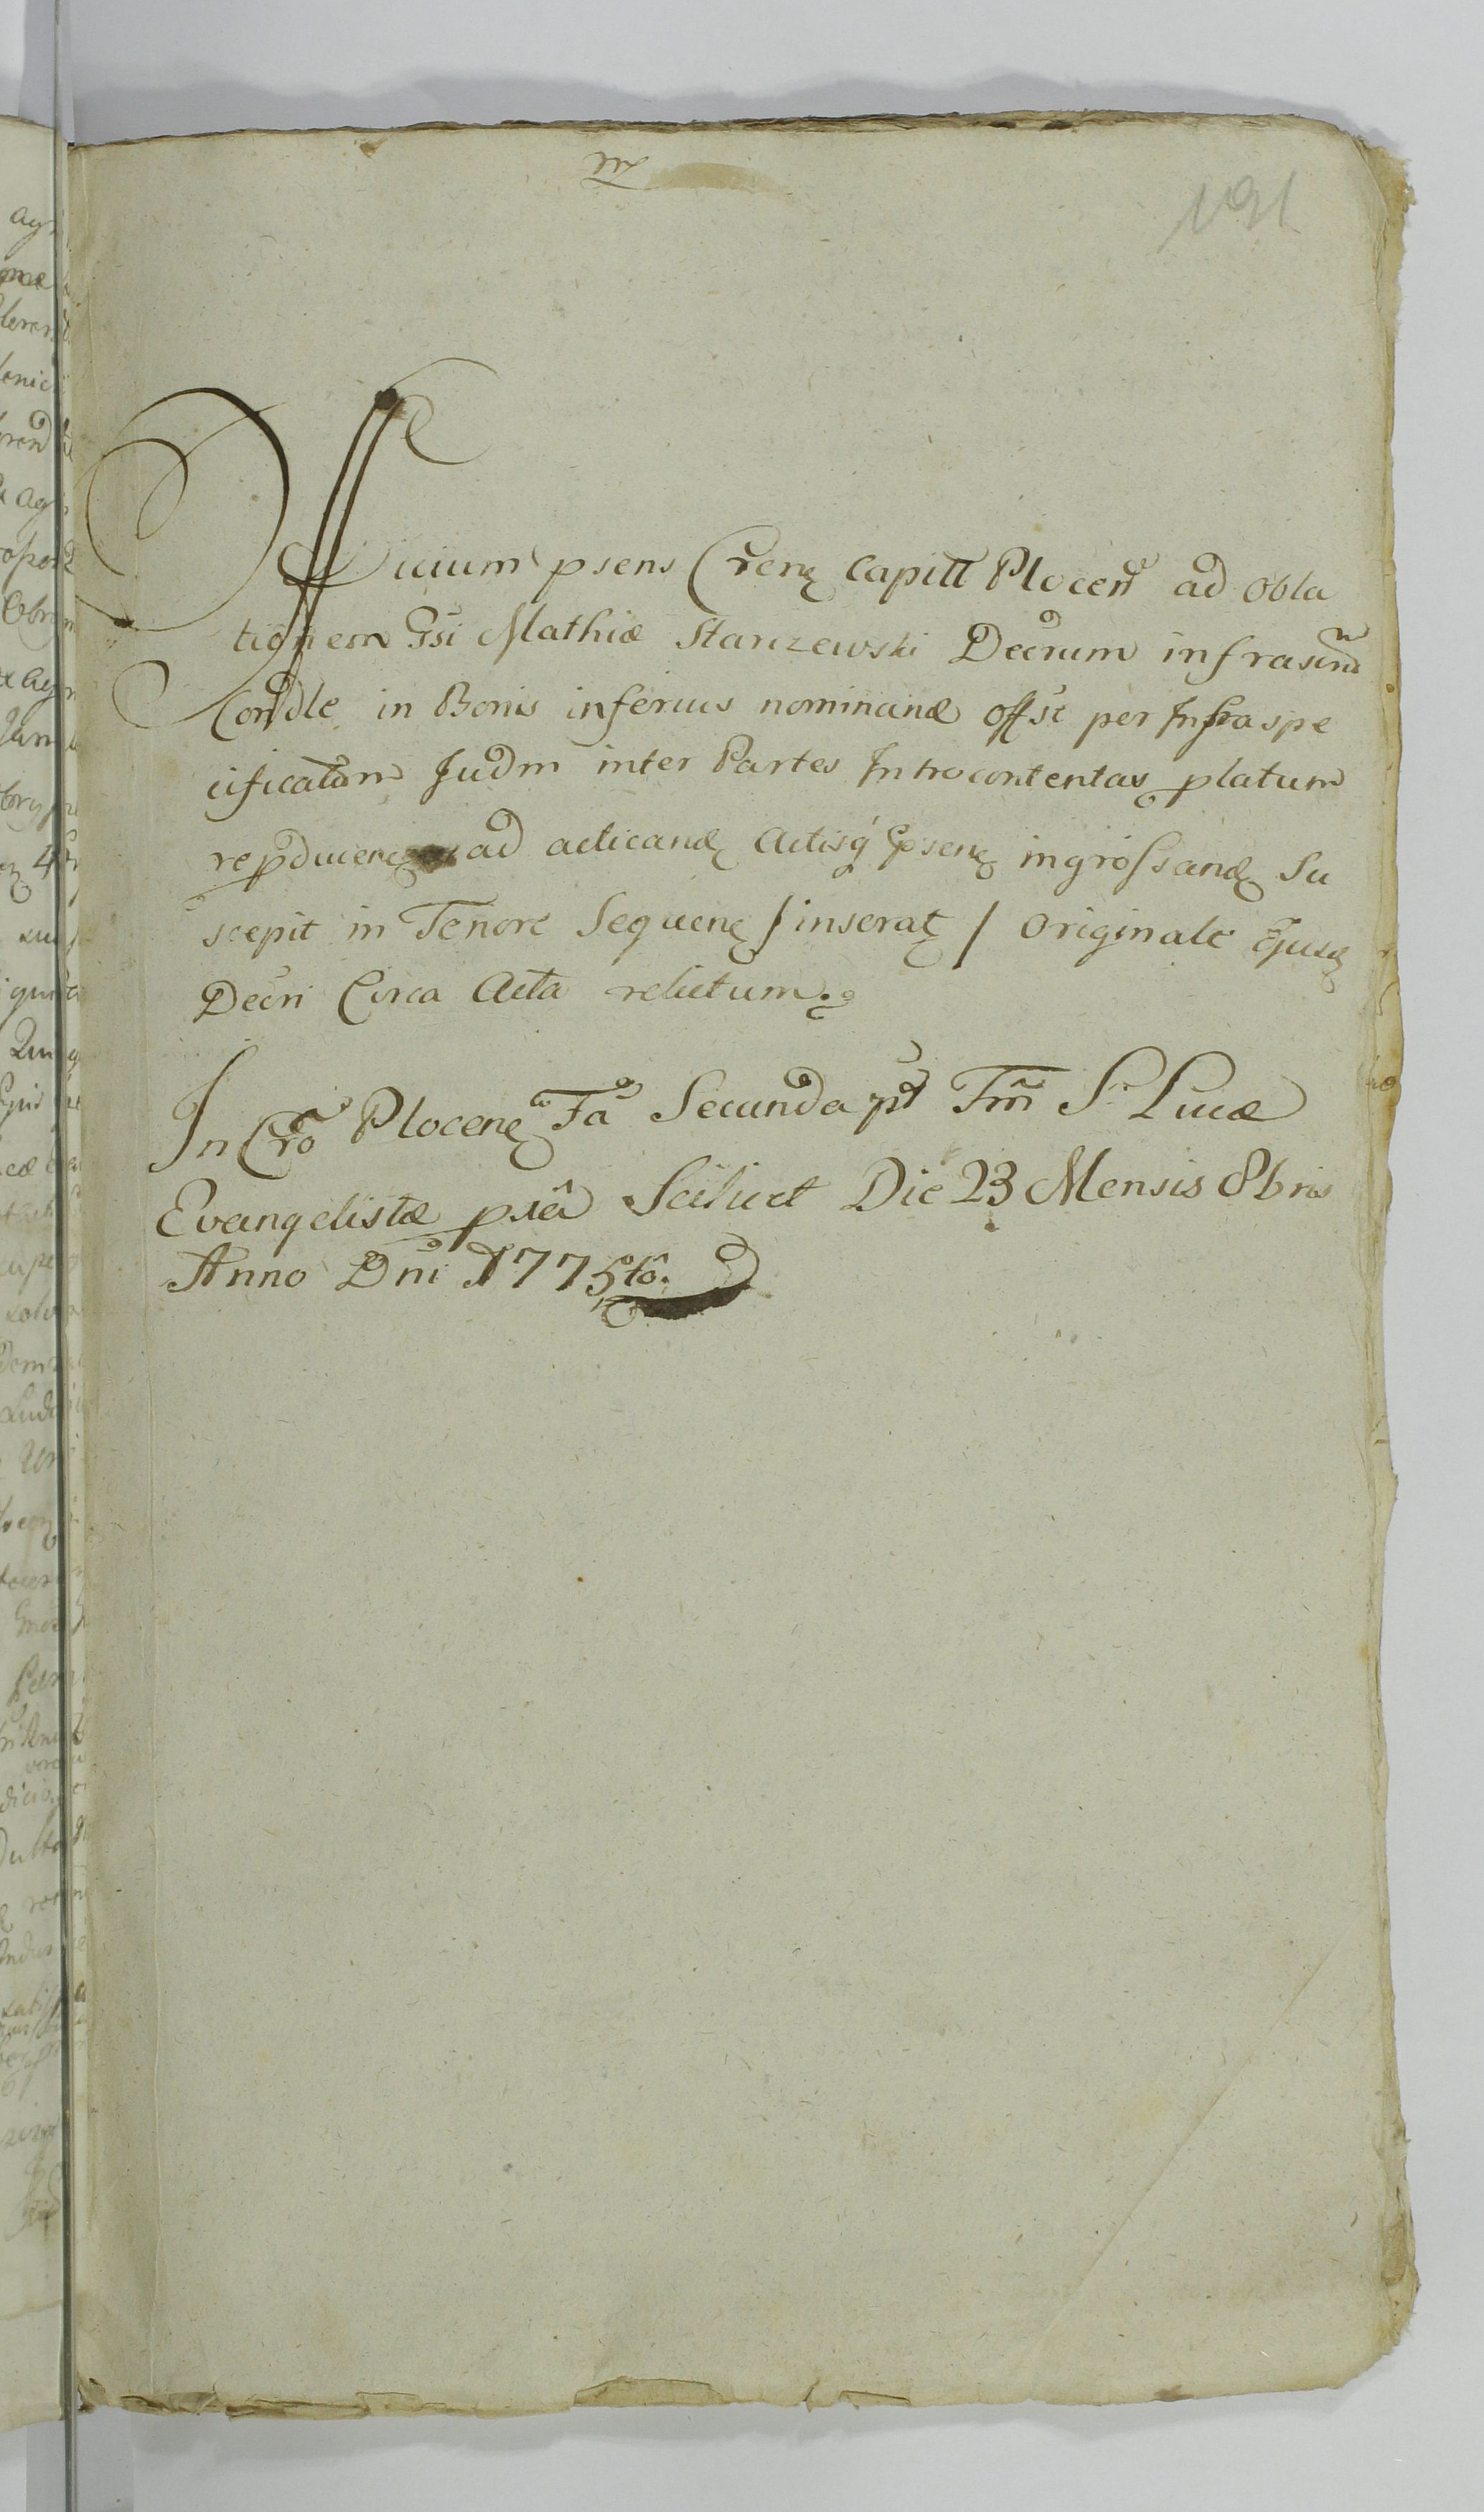 191
Officium psens Crens Capitt Plocen ad Obla
tionem Gsi Mathiæ Starzewski Decrum infrascrm
Condle in Bonis inferius nominand offst per Infraspe
cificatum Judm inter Partes Introcontentas platum
repducens ad acticand Actisq psens ingrossand Su
scepit in Tenore Sequens / inserat / Originale Ejusd
Decri Circa Acta relictum.
In Cro Plocens Fa Secunda pt Fm S. Lucæ
Evangelistæ pxa Scilicet Die 23 Mensis 8bris
Anno Dni 1775to.